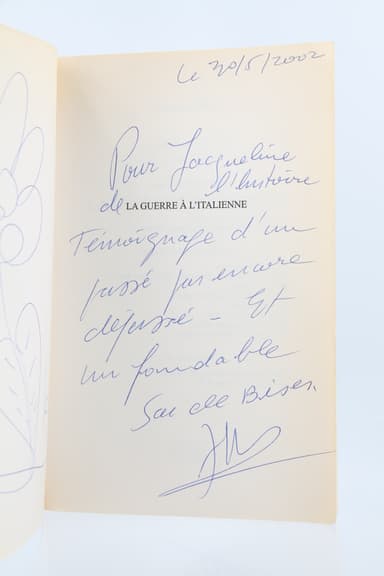 Le 30/5/2002
Pour Jacqueline
de LA GUERRE À L'ITALIENNE l'histoire
Témoignage d'un
passé pas encore
dépassé - Et
un formidable
Sac de Bises